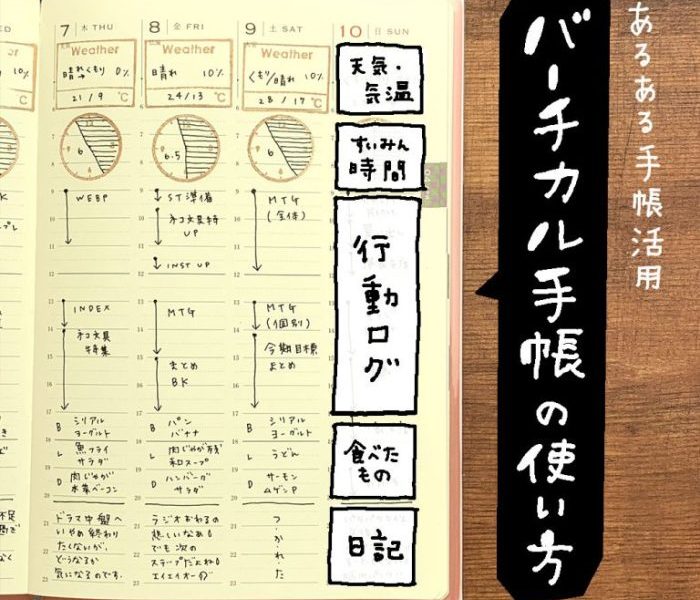 ED
7 木 THU
8 金 FRI
9 土 SAT
10 日 SUN
Weather
晴れ→くもり 0%
21 / 9 ℃
6
WEBP
INDEX
ネコ文具
特集
B シリアル
ヨーグルト
L 魚フライ
サラダ
D 肉じゃが
水菜ベーコン
ドラマ中盤へ
いやぁ終わり
たくないが、
どうなるか
気になるのです。
Weather
晴れ 10%
24/13 ℃
6.5
ST準備
ネコ文具特
UP
INST UP
MTG
まとめ
BK
B パン
バナナ
L 肉じゃが残
和スープ
D ハンバーグ
サラダ
ラジオおわるの
悲しいなぁ
でも次の
ステップだよね
エイエイオー
Weather
くもり/晴れ 10%
28 / 17 ℃
6
MTG
(全体)
MTG
(個別)
今期目標
まとめ
B シリアル
ヨーグルト
L うどん
D サーモン
ムゲンP
つ・か・れ・た
天気・
気温
すいみん
時間
行動ログ
食べた
もの
日記
バーチカル手帳の使い方
あるある手帳活用